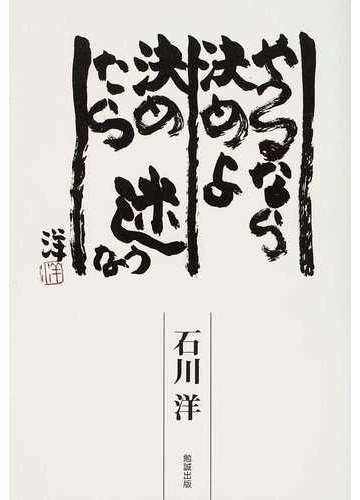 やるなら
決めよ
決め
たら
迷うな
洋
洋
石川 洋
勉誠出版